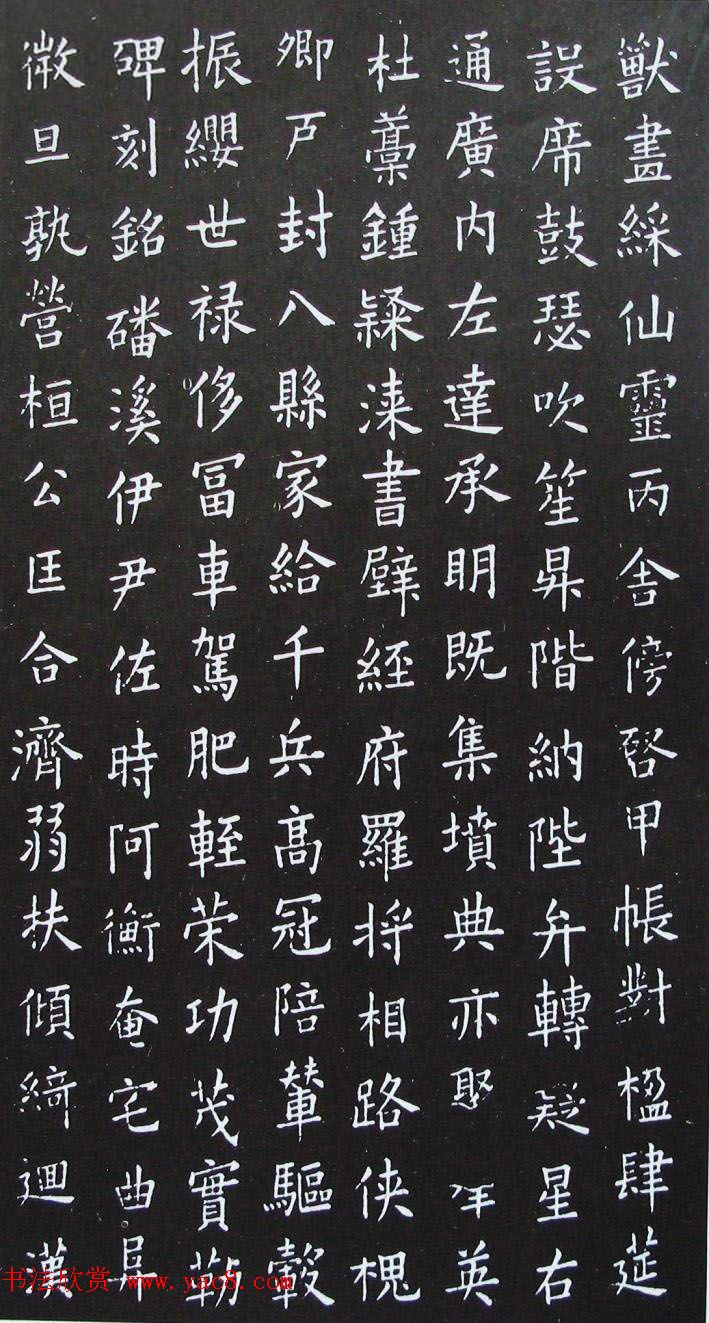 獸畫綵仙靈丙舍傍啓甲帳對楹肆筵
設席鼓瑟吹笙昇階納陛弁轉疑星右
通廣内左達承明既集墳典亦聚英
杜藁鍾隸漆書壁經府羅將相路俠槐
卿户封八縣家給千兵高冠陪輦驅轂
振纓世禄侈冨車駕肥輕榮功茂實勒
碑刻銘磻溪伊尹佐時阿衡奄宅曲阜
微旦孰營桓公匡合濟弱扶傾綺迴漢
书法欣赏 www.yac8.com